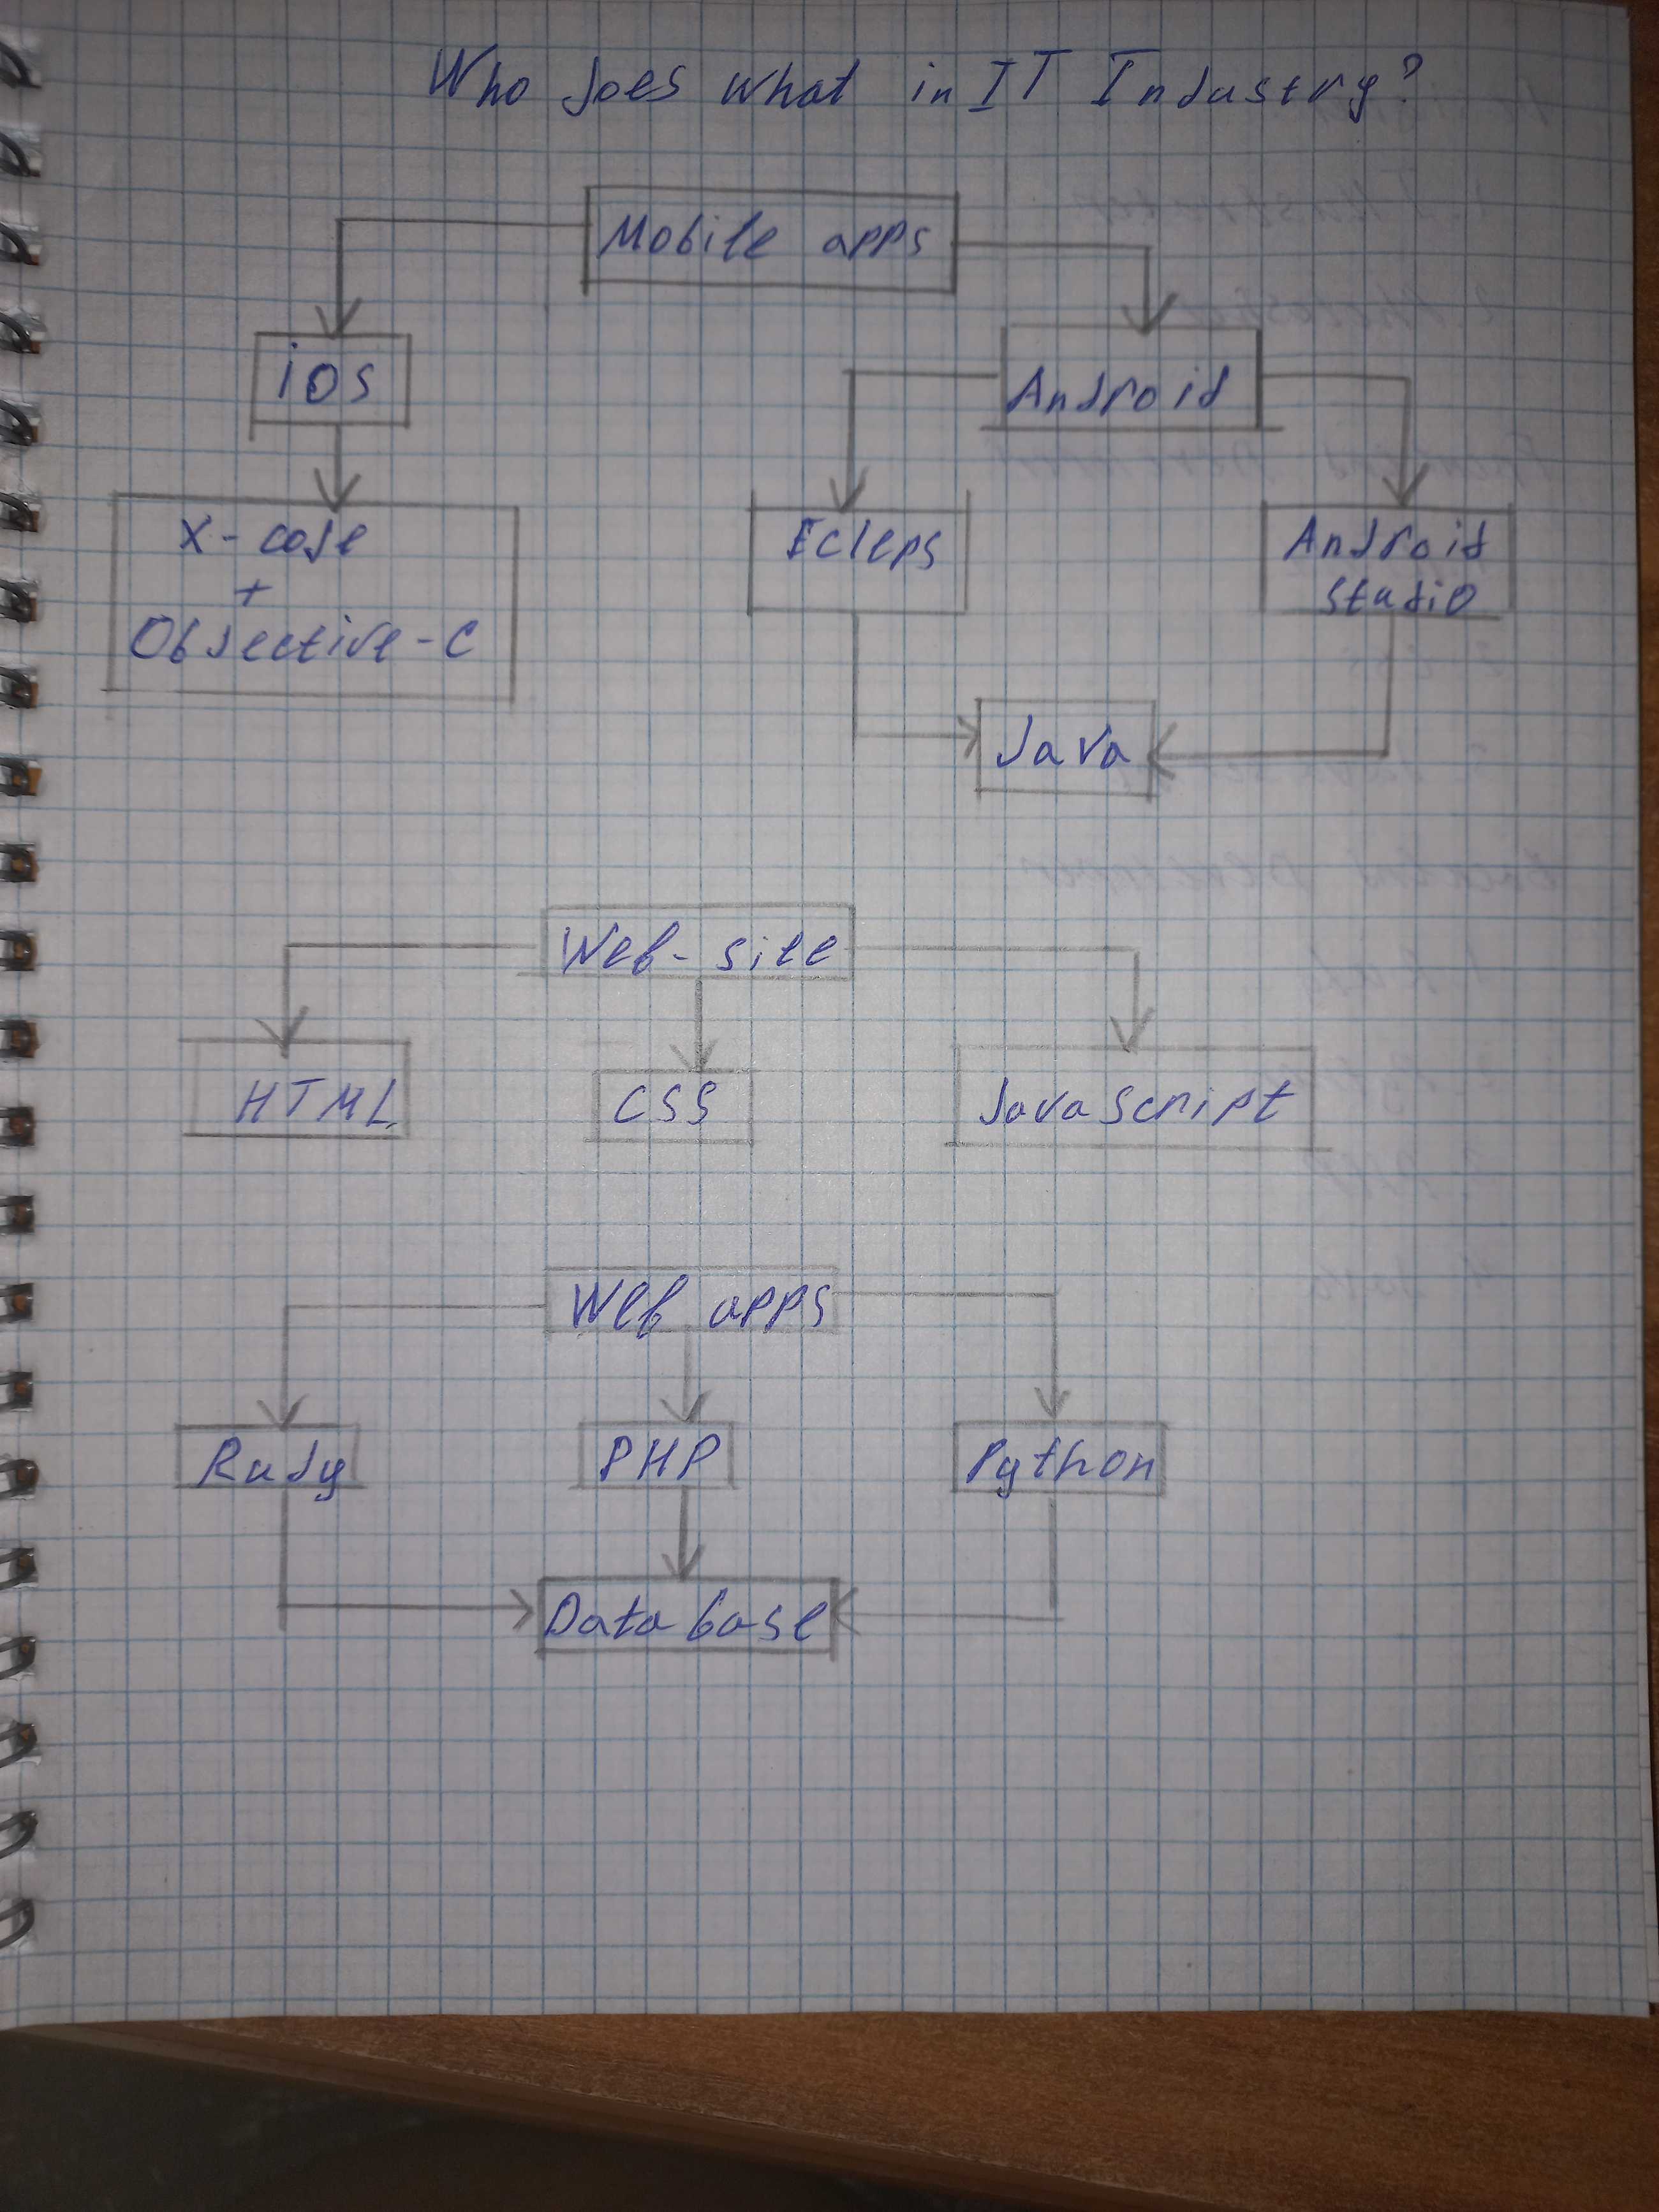 Who does what in IT Industry?
Mobile apps
ios
Android
X-code
+
Objective-C
Ecleps
Android
studio
Java
Web-site
HTML
CSS
Javascript
Web apps
Rudy
PHP
Python
Data base